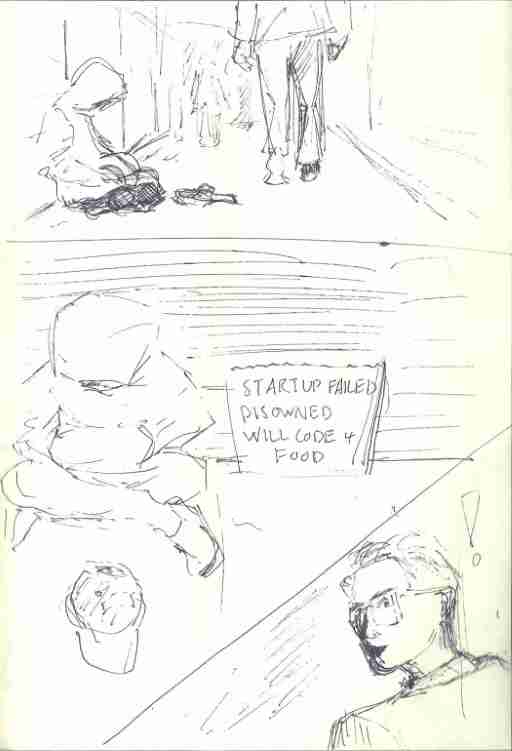 STARTUP FAILED
DISOWNED
WILL CODE 4
FOOD
!